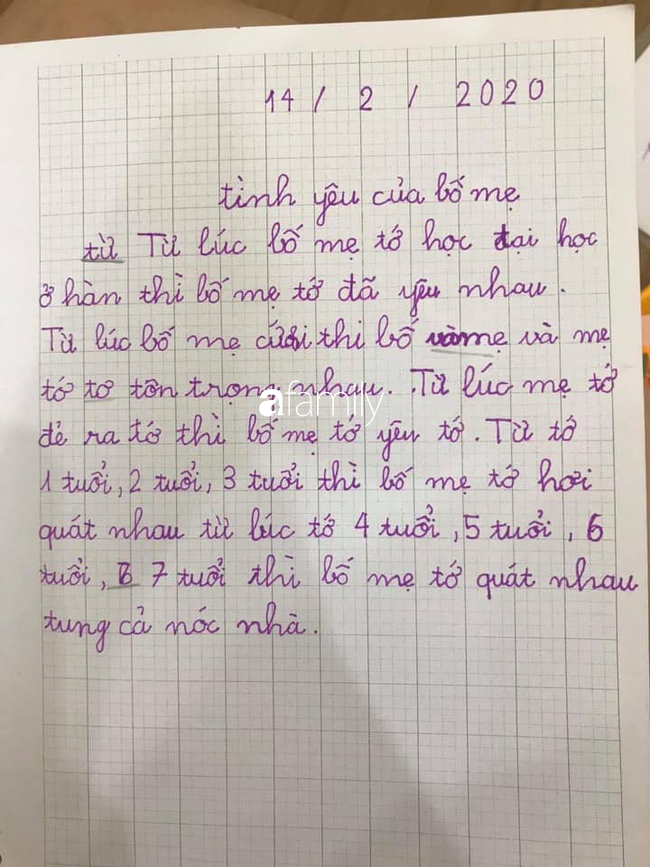 14 / 2 / 2020
tình yêu của bố mẹ
từ Từ lúc bố mẹ tớ học tại học
ở hàn thì bố mẹ tớ đã yêu nhau.
Từ lúc bố mẹ cưới thì bố vàmẹ và mẹ
tớ tơ tôn trọng nhau. Từ lúc mẹ tớ
đẻ ra tớ thì bố mẹ tớ yêu tớ. Từ tớ
1 tuổi, 2 tuổi, 3 tuổi thì bố mẹ tớ hơi
quát nhau từ lúc tớ 4 tuổi, 5 tuổi, 6
tuổi, 7 tuổi thì bố mẹ tớ quát nhau
tung cả nóc nhà.
afamily